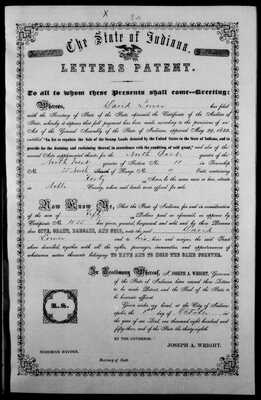 X
The State of Indiana.
LETTERS PATENT.
To all to whom these Presents shall come—Greeting:
Whereas, David Comer has filed
with the Secretary of State of the State aforesaid the Certificate of the Auditor of
State, whereby it appears that full payment has been made according to the provisions of an
Act of the General Assembly of the State of Indiana, approved May 29, 1852,
entitled "An Act to regulate the Sale of the Swamp Lands donated by the United States to the State of Indiana, and to
provide for the draining and reclaiming thereof in accordance with the condition of said grant," and also of the
several Acts supplemental thereto for the North East quarter of the
quarter of Section No. in Township
No. North of Range No. East, containing
Forty Acres, be the same more or less, situate
in Noble County, in lands
Now Know Ye, That the State of Indiana, for and in consideration of
the sum of Fifty Dollars paid as aforesaid, as appears by
Certificate No. has given, granted, bargained and sold, and by these Presents
does GIVE, GRANT, BARGAIN, AND SELL, unto the said David
Comer and to his heirs and assigns, the said Tract
above described, together with all the rights, privileges, immunities, and appurtenances of
whatsoever nature thereunto belonging, TO HAVE AND TO HOLD THE SAME FOREVER.
In Testimony Whereof, I, JOSEPH A. WRIGHT, Governor
of the State of Indiana, have caused these Letters
to be made Patent, and the Seal of the State to
be hereunto affixed.
Given under my hand, at the City of Indianapolis,
the day of October in
the year of our Lord, one thousand eight hundred and
fifty three, and of the State the thirty eighth.
BY THE GOVERNOR:
JOSEPH A. WRIGHT.
L. S.
NEHEMIAH HAYDEN,
Secretary of State.